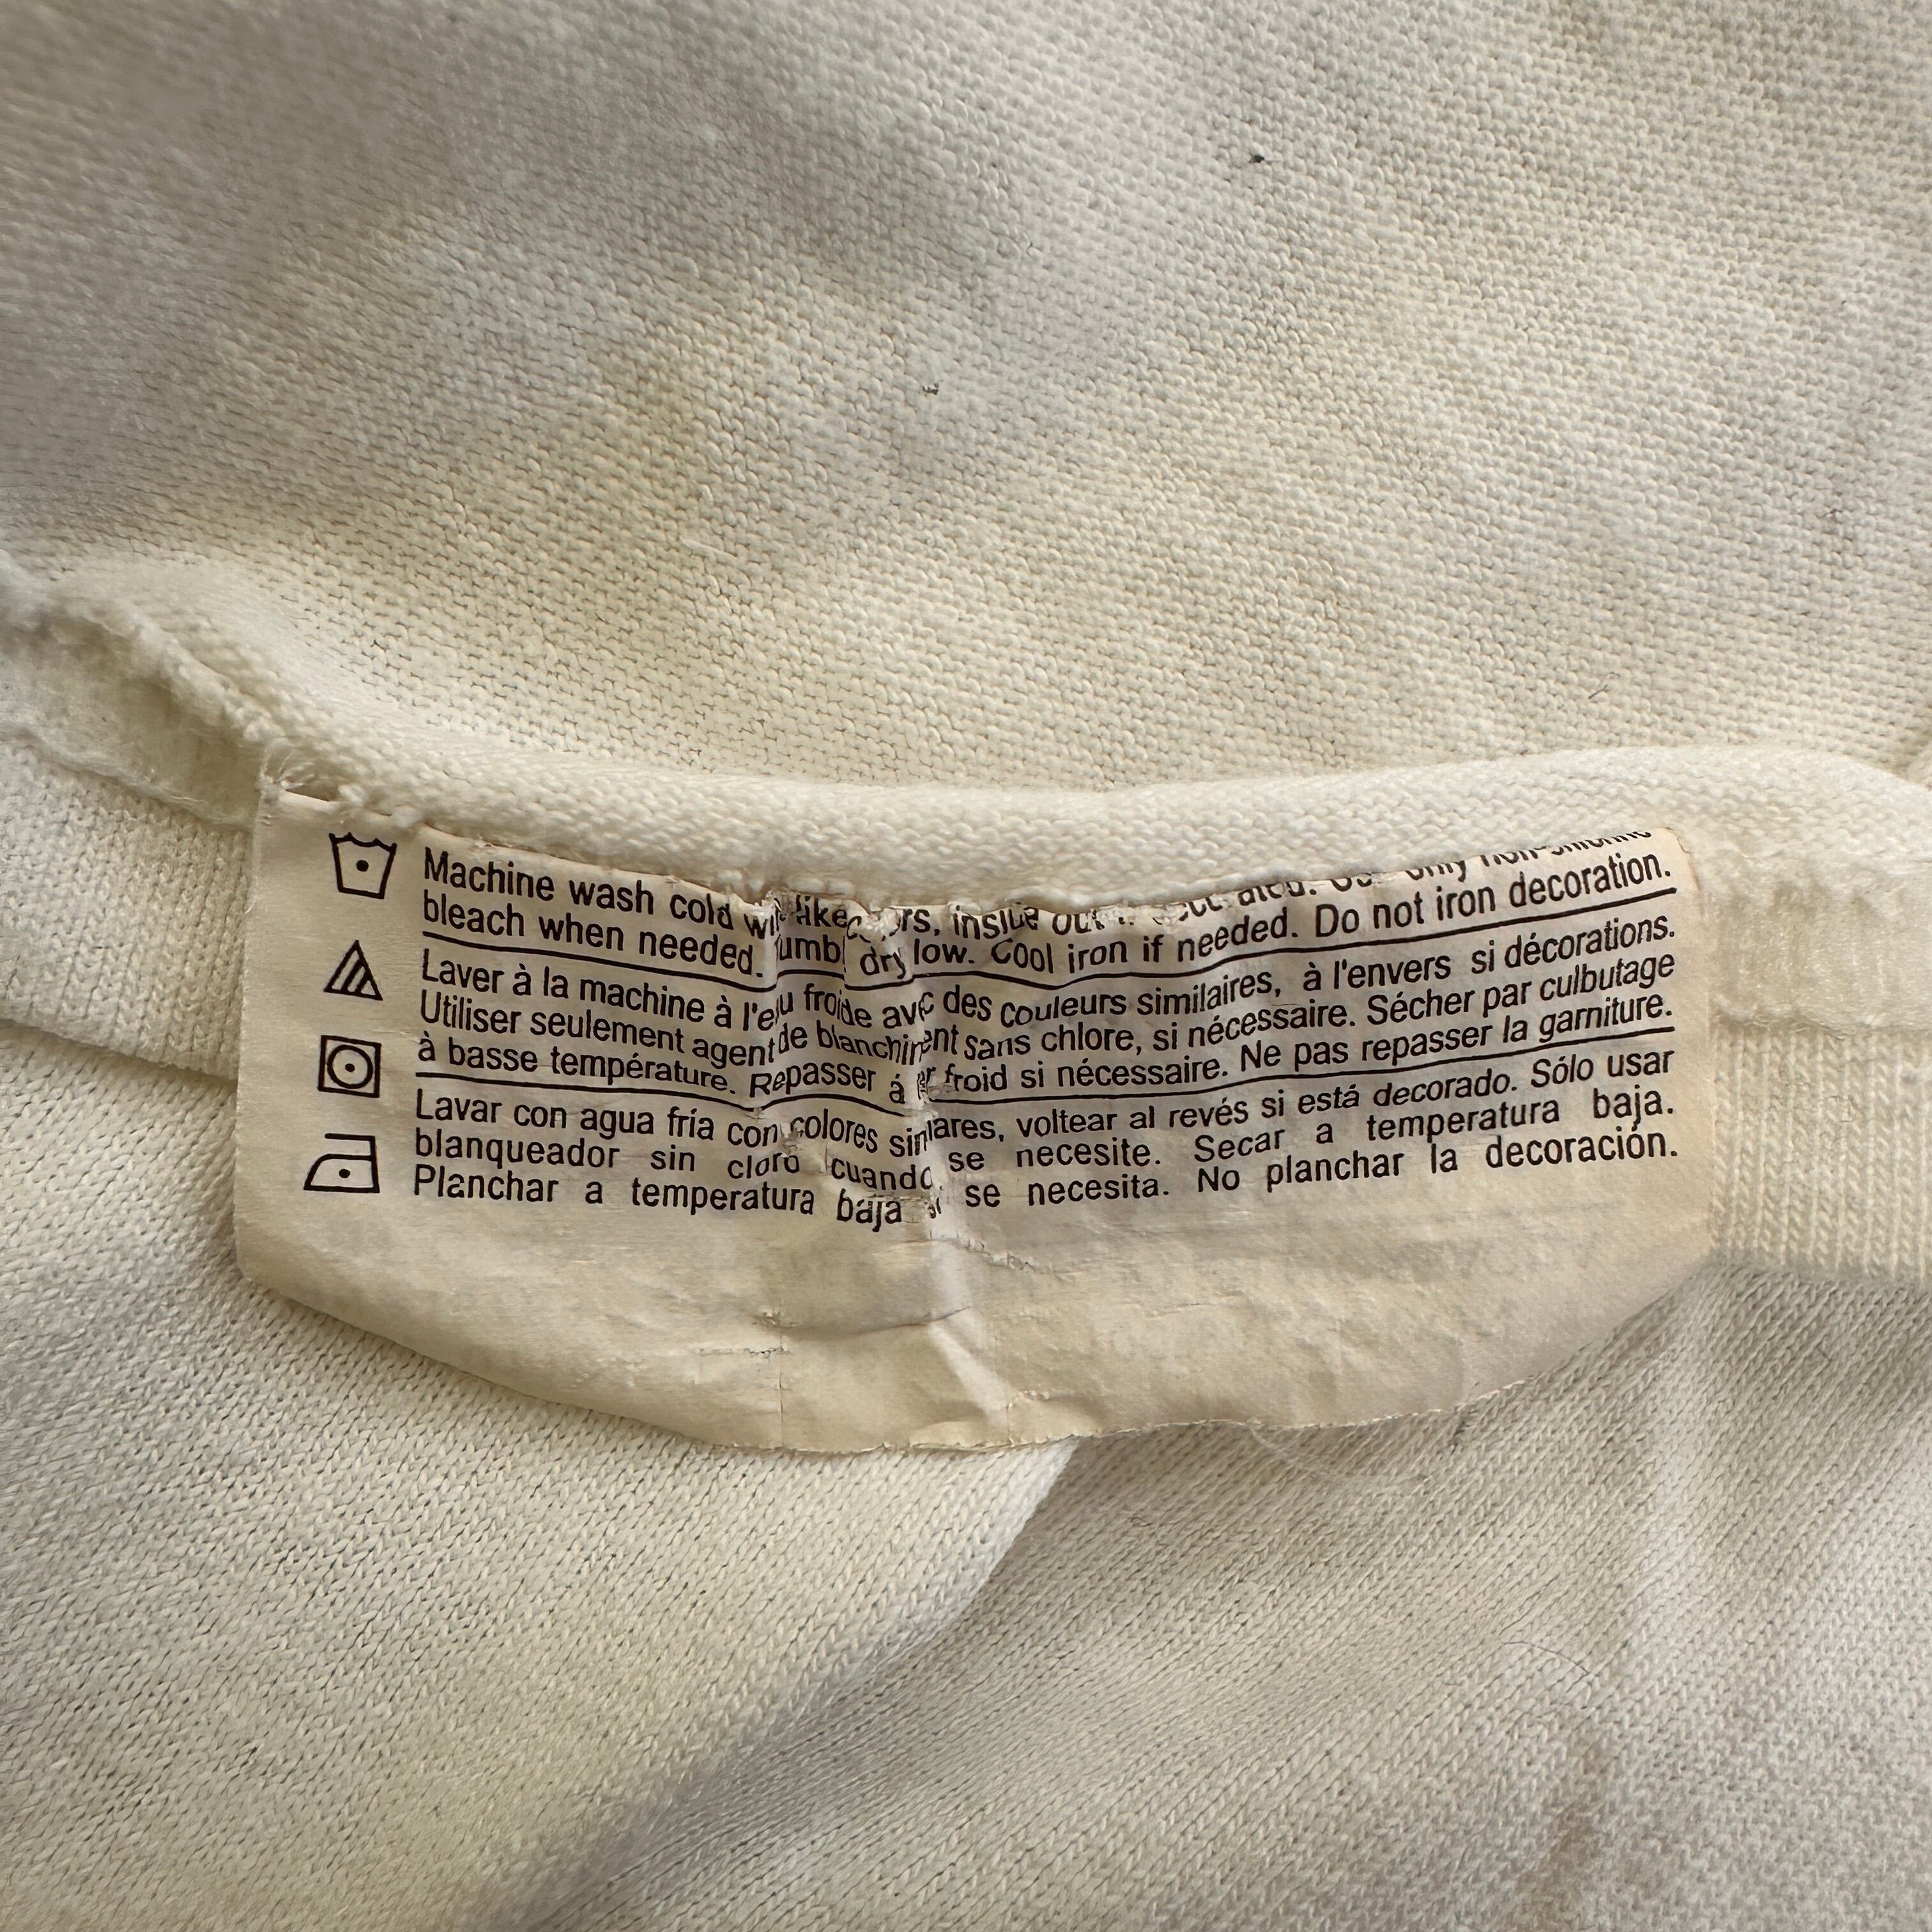 Machine wash cold like inside out only
bleach when needed. dry low. Cool iron if needed. Do not iron decoration.
Laver à la machine à l'eau froide avec des couleurs similaires, à l'envers si décorations.
Utiliser seulement agent de blanchiment sans chlore, si nécessaire. Sécher par culbutage
à basse température. Repasser á fer froid si nécessaire. Ne pas repasser la garniture.
Lavar con agua fría con colores similares, voltear al revés si está decorado. Sólo usar
blanqueador sin cloro cuando se necesite. Secar a temperatura baja.
Planchar a temperatura baja si se necesita. No planchar la decoración.